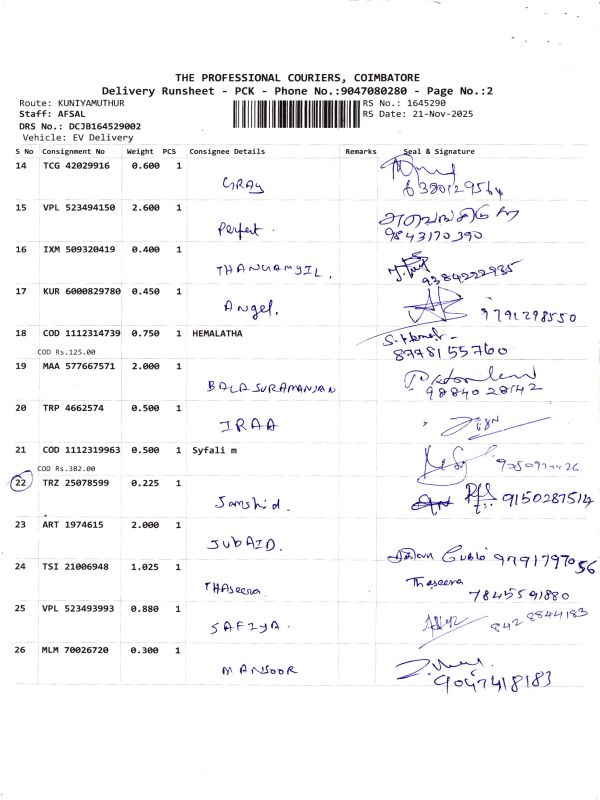 THE PROFESSIONAL COURIERS, COIMBATORE
Delivery Runsheet - PCK - Phone No.:9047080280 - Page No.:2
Route: KUNIYAMUTHUR RS No.: 1645290
Staff: AFSAL RS Date: 21-Nov-2025
DRS No.: DCJB164529002
Vehicle: EV Delivery
S No Consignment No Weight PCS Consignee Details Remarks Seal & Signature
14 TCG 42029916 0.600 1
GRAY 6380129564
15 VPL 523494150 2.600 1
Perfect. 9843170390
16 IXM 509320419 0.400 1
THANGAMYIL. 9384222935
17 KUR 6000829780 0.450 1
Angel. 9791298550
18 COD 1112314739 0.750 1 HEMALATHA
COD Rs.125.00 8778155760
19 MAA 577667571 2.000 1
BALASURAMANIAN 9884028142
20 TRP 4662574 0.500 1
IRAA
21 COD 1112319963 0.500 1 Syfali m
COD Rs.382.00
22 TRZ 25078599 0.225 1
Jamshid. 9150287514
23 ART 1974615 2.000 1
JUBAID. 9791797056
24 TSI 21006948 1.025 1 Thaseera
THAseera. 7845591880
25 VPL 523493993 0.880 1
SAFIYA. 8428844183
26 MLM 70026720 0.300 1
MANSOOR 9047418183